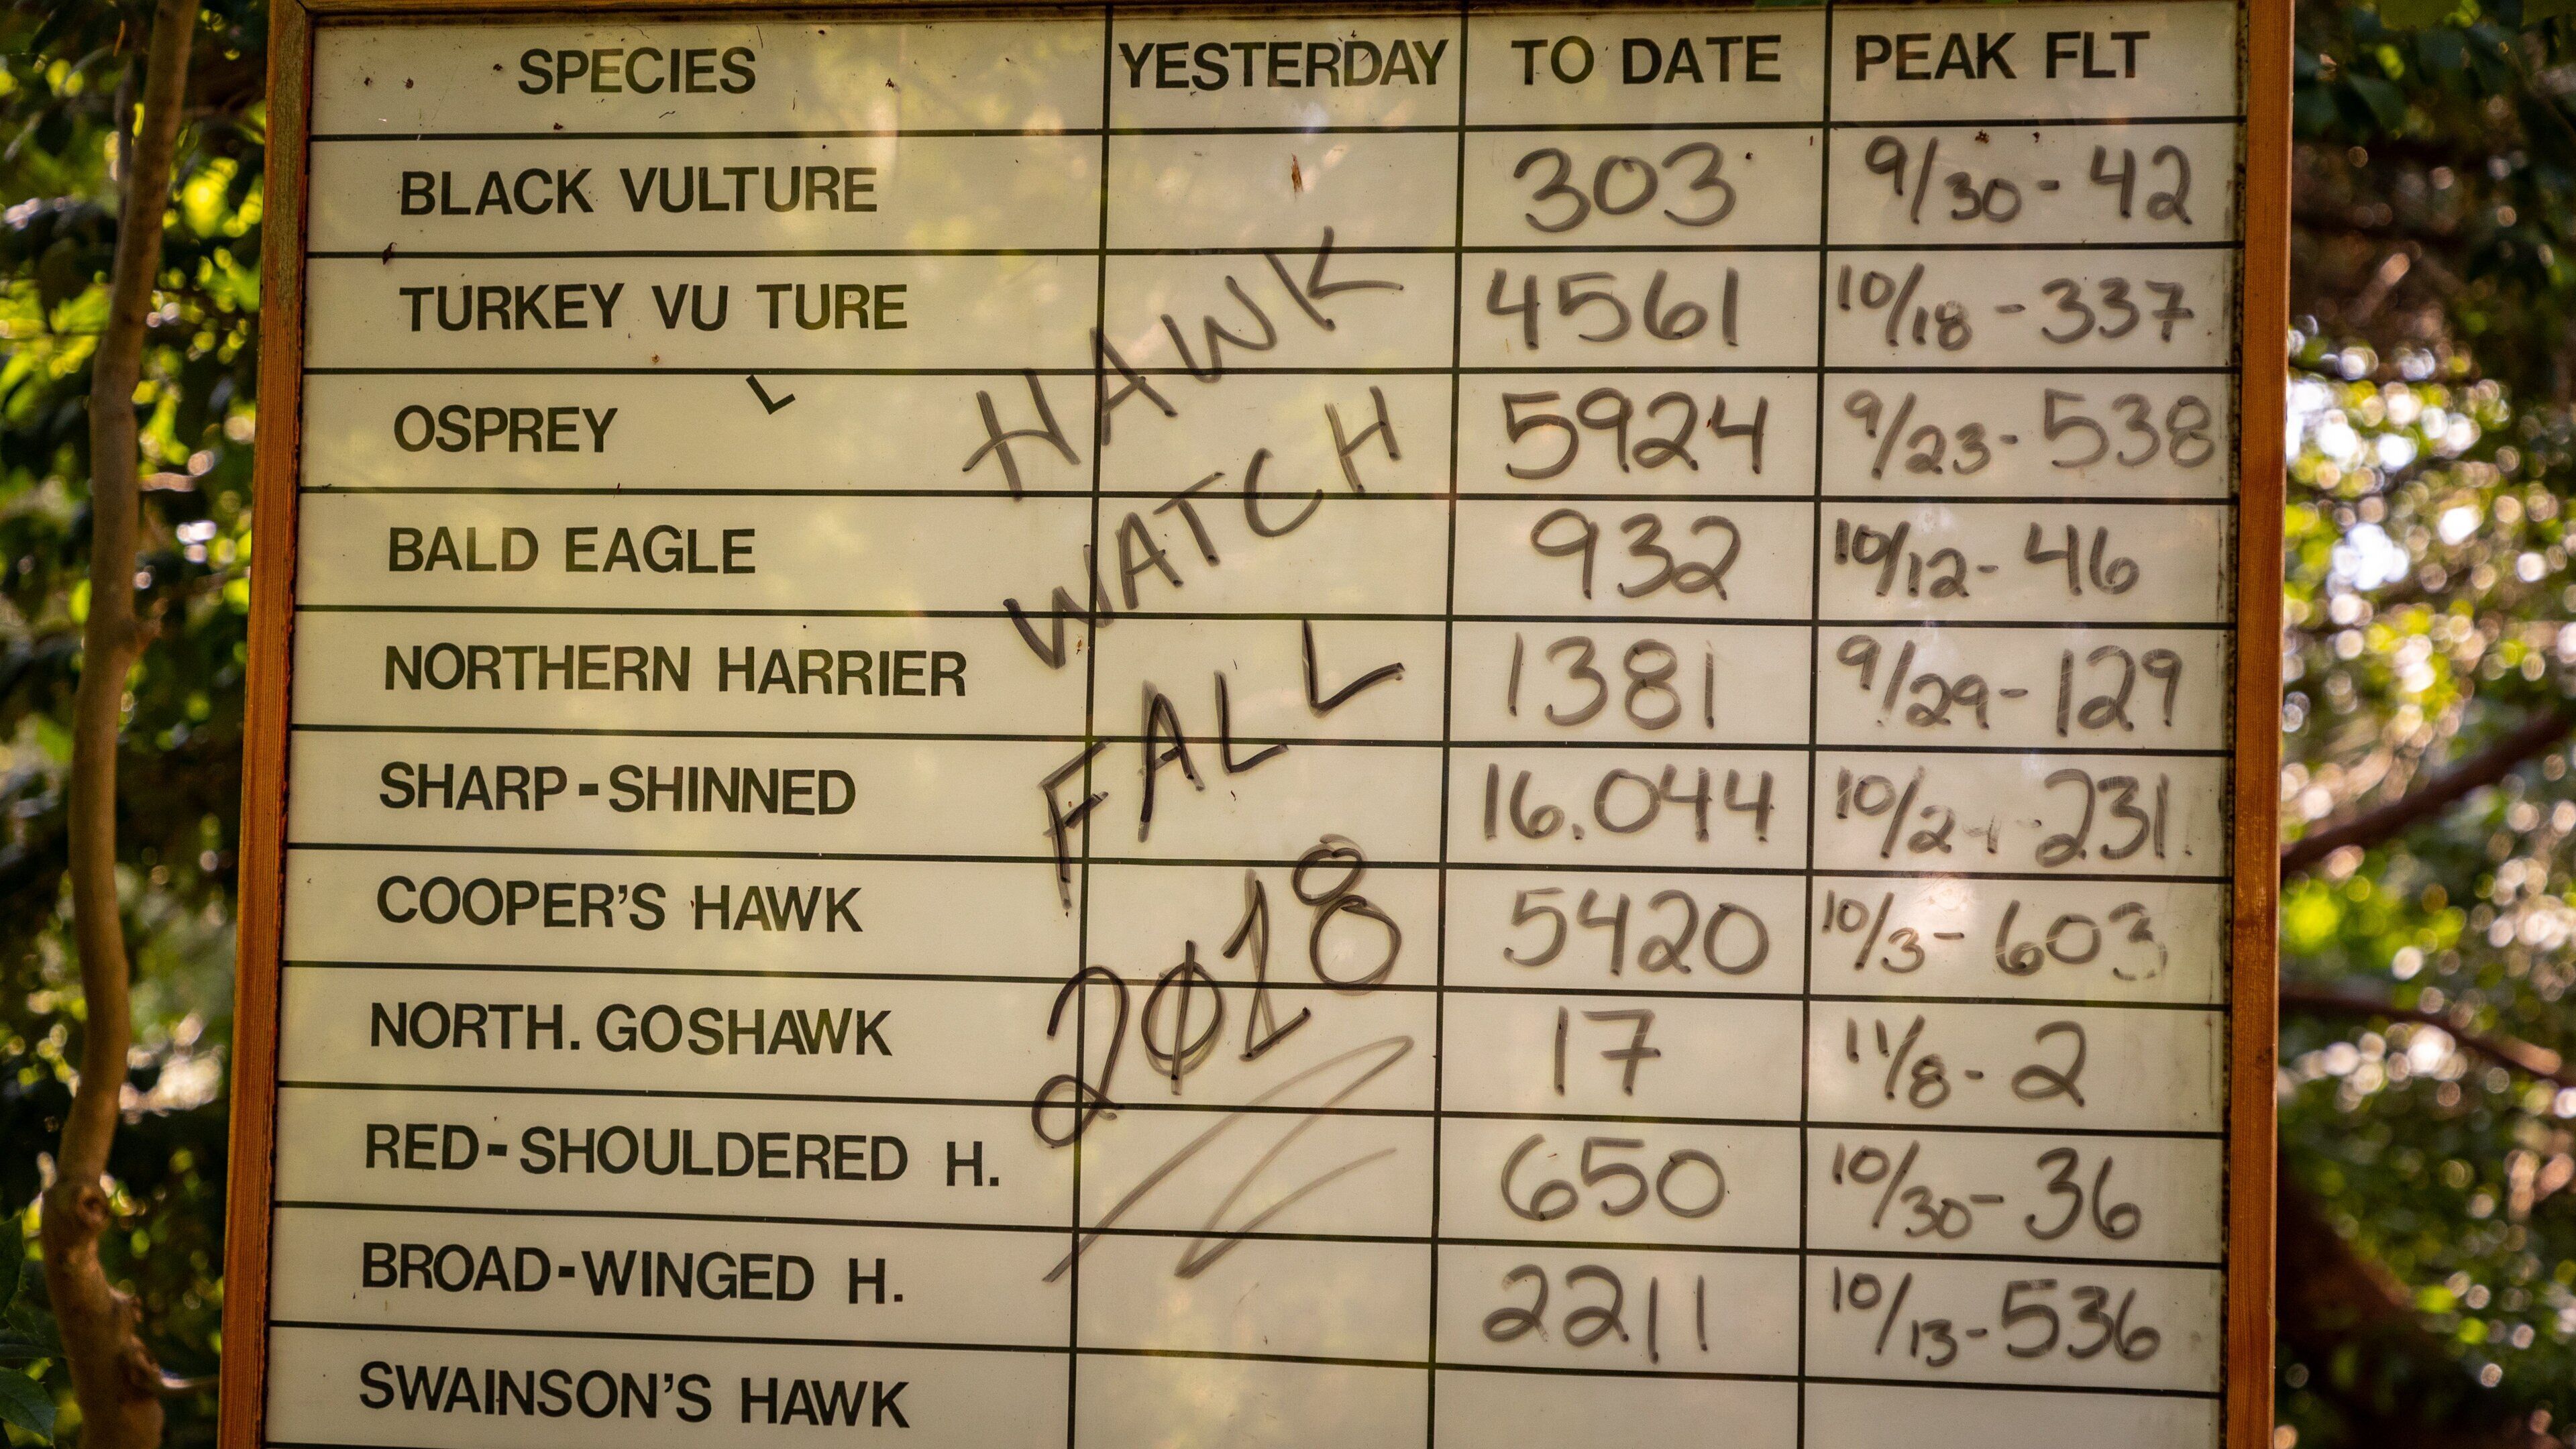 SPECIES YESTERDAY TO DATE PEAK FLT
BLACK VULTURE 303 9/30 - 42
TURKEY VU TURE 4561 10/18 - 337
L
OSPREY 5924 9/23 - 538
BALD EAGLE 932 10/12 - 46
NORTHERN HARRIER 1381 9/29 - 129
SHARP-SHINNED 16.044 10/2 231
COOPER'S HAWK 5420 10/3 - 603
NORTH. GOSHAWK 17 11/8 - 2
RED-SHOULDERED H. 650 10/30 - 36
BROAD-WINGED H. 2211 10/13 - 536
SWAINSON'S HAWK
HAWK
WATCH
FALL
2018